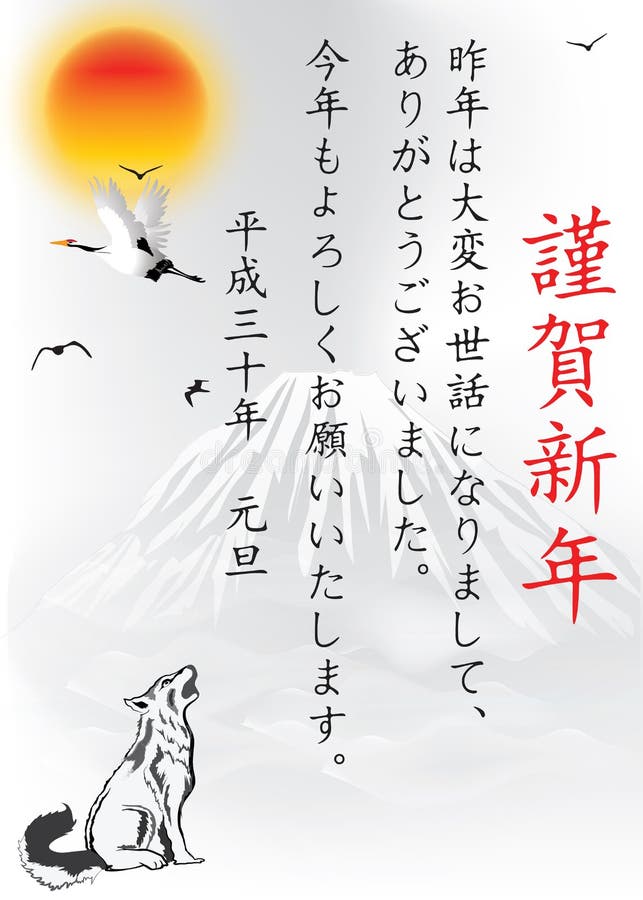 謹賀新年
昨年は大変お世話になりまして、
ありがとうございました。
今年もよろしくお願いいたします。
平成三十年　元旦
dreamstime